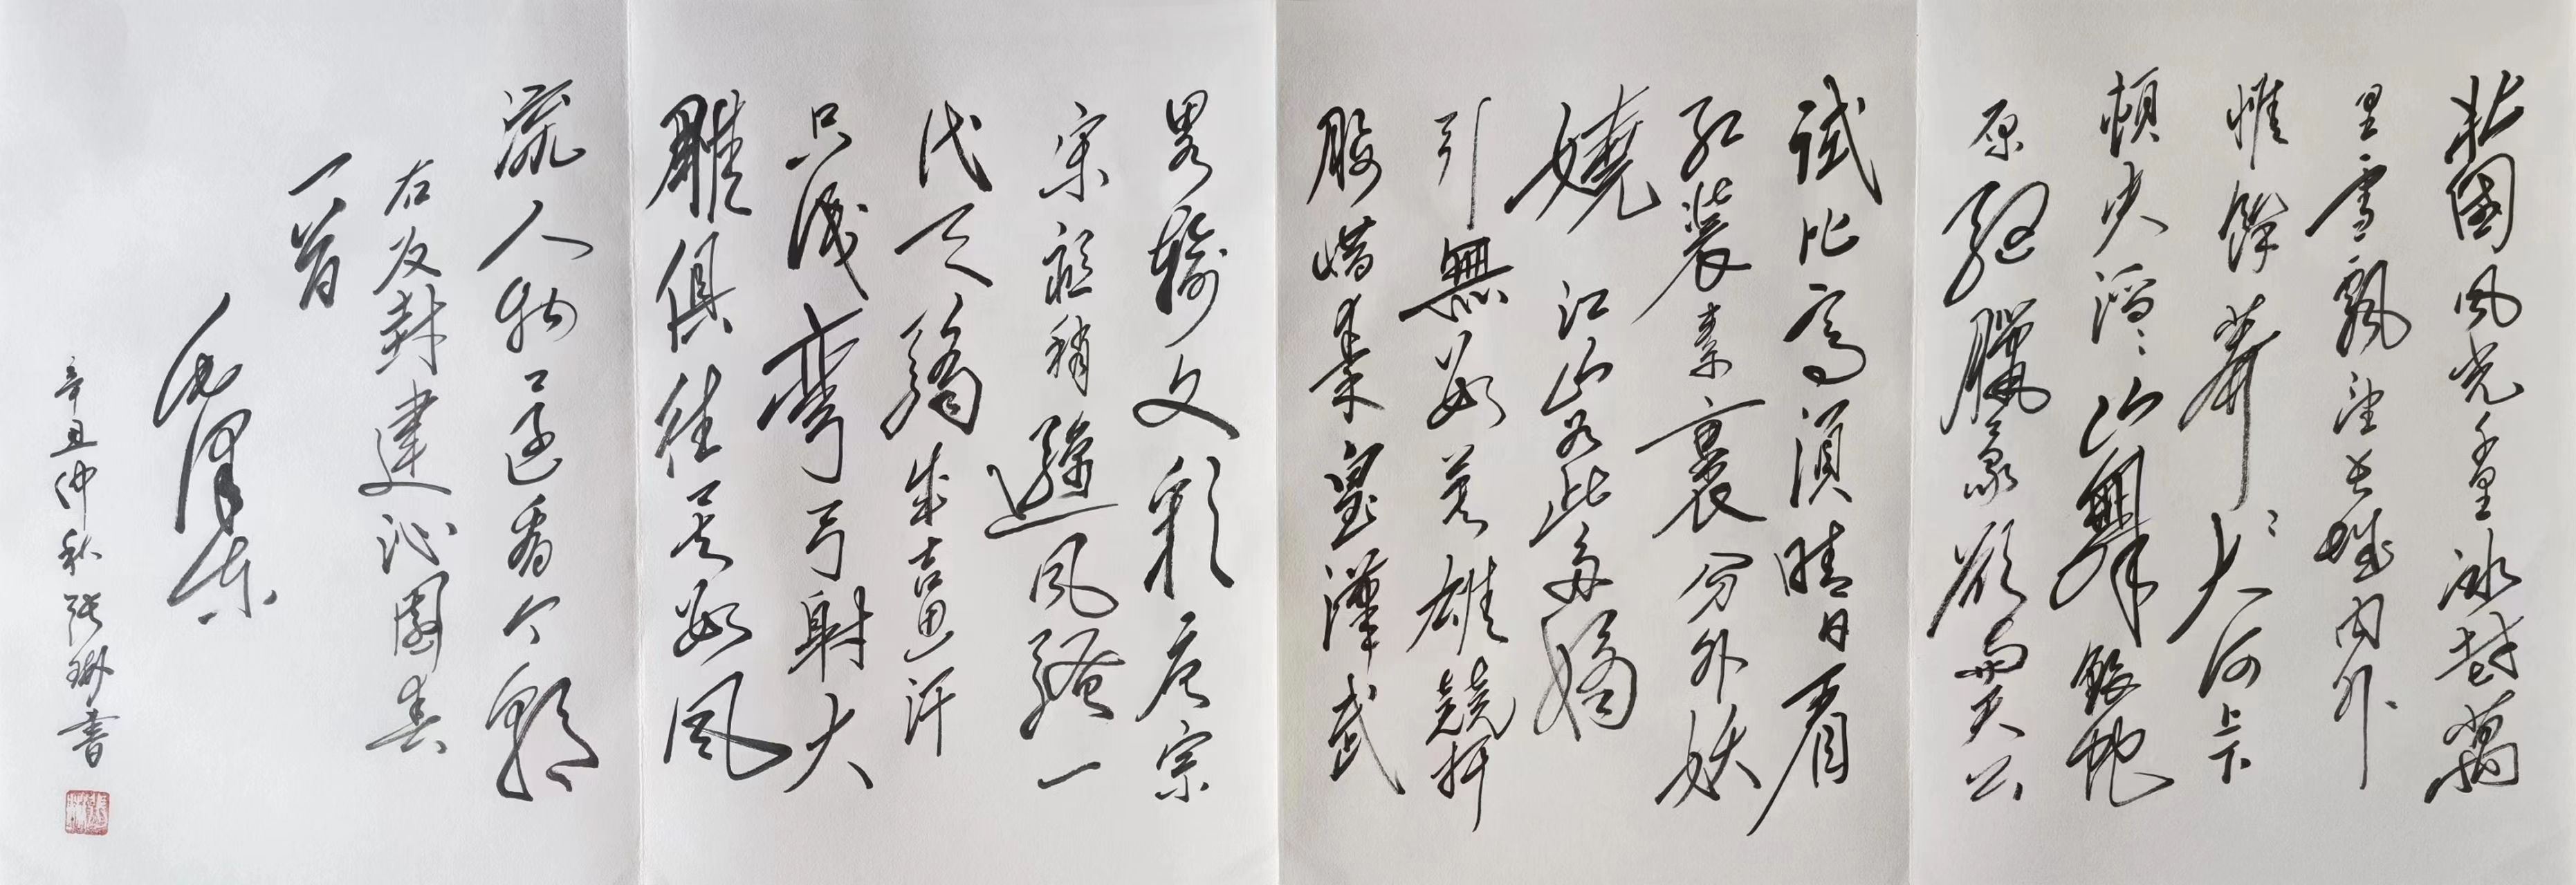 北國風光千里冰封萬
里雪飄望長城内外
惟餘莽〻大河上下
頓失滔〻山舞銀蛇
原馳臘象欲與天公
試比高須晴日看
紅裝素裹分外妖
嬈江山如此多嬌
引無數英雄競折
腰惜秦皇漢武
畧輸文彩唐宗
宋祖稍遜風騷一
代天驕成吉思汗
只識弯弓射大
雕俱往矣數風
流人物還看今朝
右反封建沁園春
一首
毛澤東
辛丑仲秋張琳書